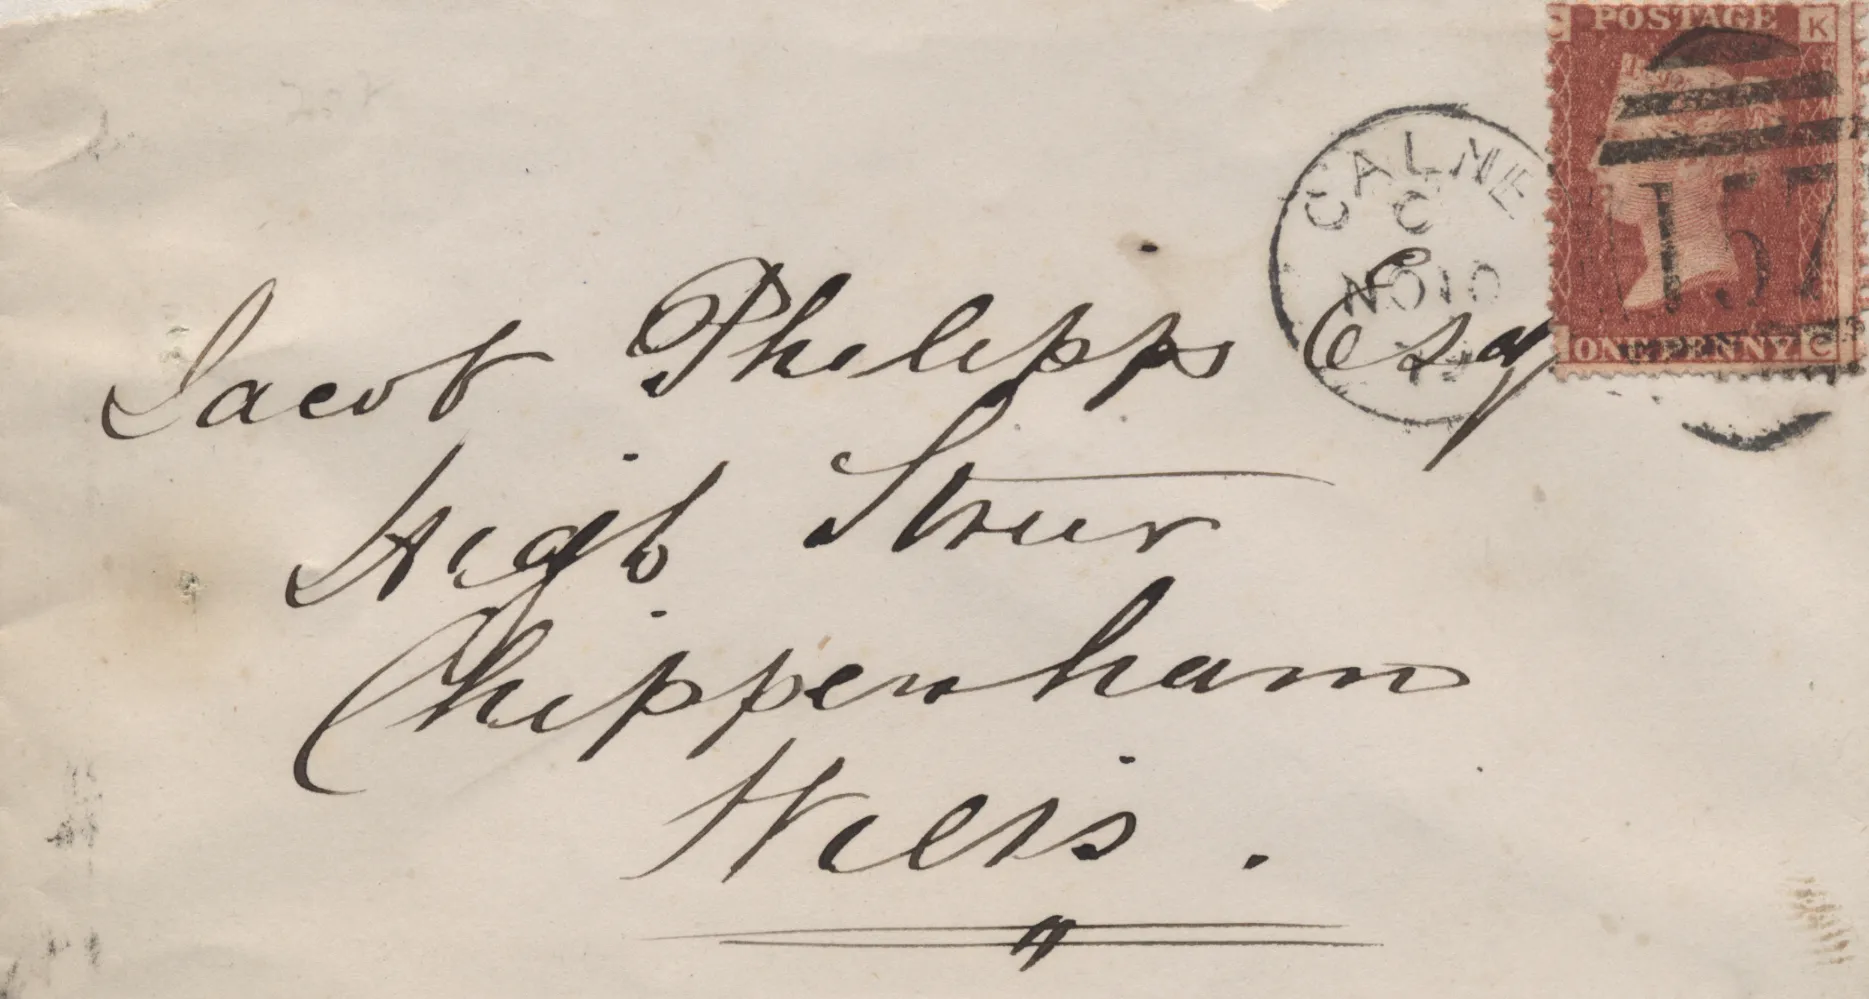 POSTAGE
K
CALNE
C
NO 10
157
ONE PENNY
C
Jacob Philipps Esq
High Street
Chippenham
Wilts.